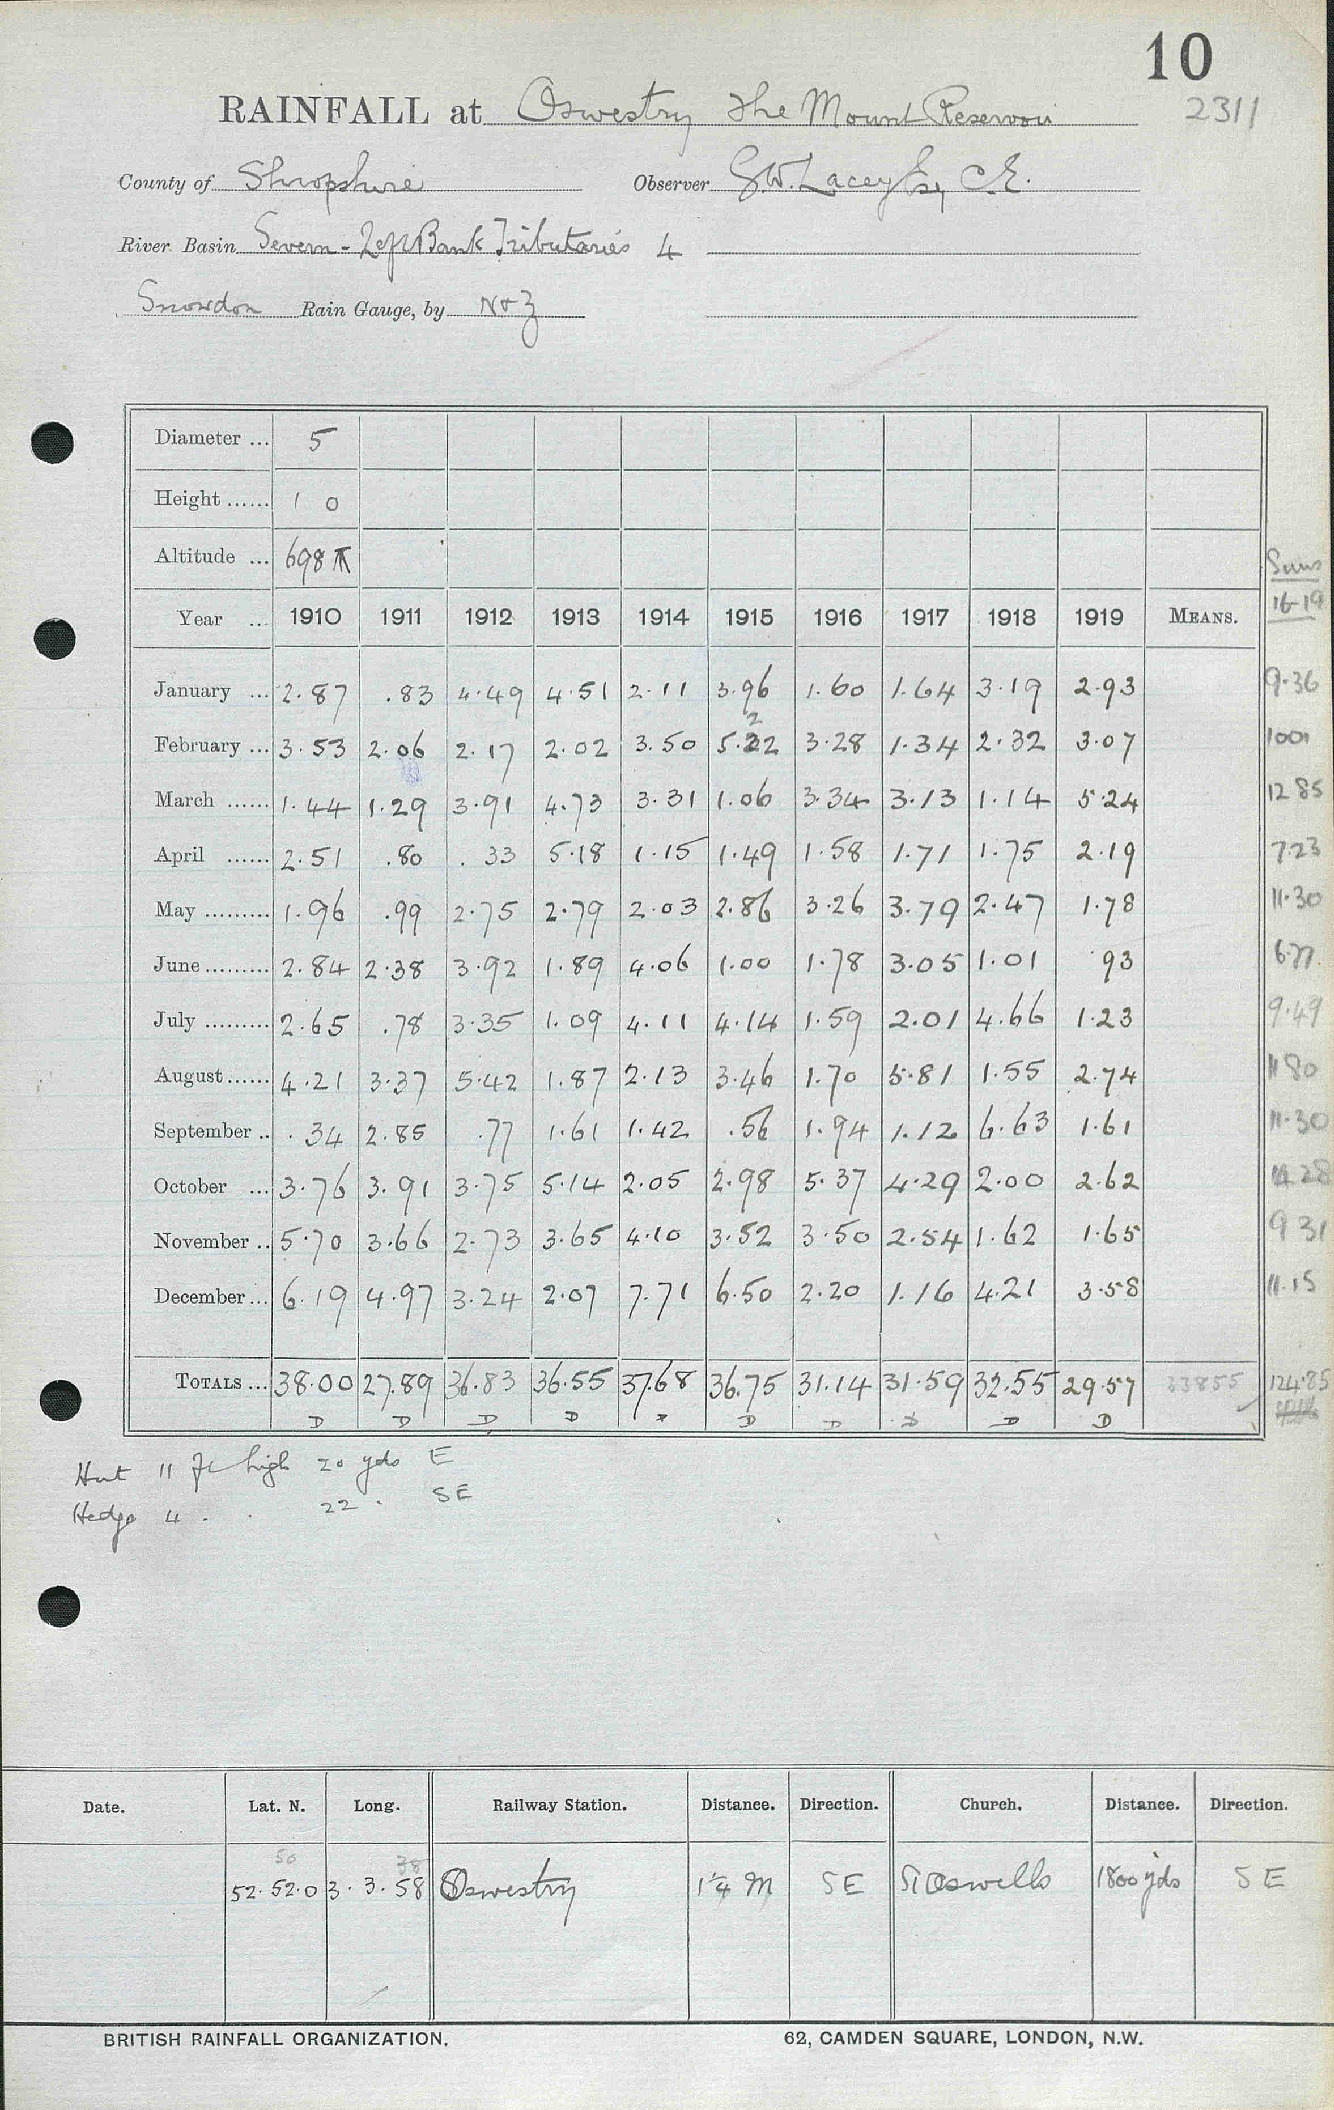 10
RAINFALL at Oswestry The Mount Reservoir 2311
County of Shropshire Observer G.W. Lacey Esq C.E.
River Basin Severn - Left Bank Tributaries 4
Snowdon Rain Gauge, by N & Z
Diameter ... 5
Height ...... 1 0
Altitude ... 698
Sums
16-19
Year ... 1910 1911 1912 1913 1914 1915 1916 1917 1918 1919 MEANS.
January ... 2.87 .83 4.49 4.51 2.11 3.96 1.60 1.64 3.19 2.93 9.36
February ... 3.53 2.06 2.17 2.02 3.50 5.22 3.28 1.34 2.32 3.07 1001
March ...... 1.44 1.29 3.91 4.73 3.31 1.06 3.34 3.13 1.14 5.24 12 85
April ...... 2.51 .80 .33 5.18 1.15 1.49 1.58 1.71 1.75 2.19 7.23
May ......... 1.96 .99 2.75 2.79 2.03 2.86 3.26 3.79 2.47 1.78 11.30
June ......... 2.84 2.38 3.92 1.89 4.06 1.00 1.78 3.05 1.01 .93 6.77
July ......... 2.65 .78 3.35 1.09 4.11 4.14 1.59 2.01 4.66 1.23 9.49
August ...... 4.21 3.37 5.42 1.87 2.13 3.46 1.70 5.81 1.55 2.74 11 80
September .. .34 2.85 .77 1.61 1.42 .56 1.94 1.12 6.63 1.61 11.30
October ... 3.76 3.91 3.75 5.14 2.05 2.98 5.37 4.29 2.00 2.62 14 28
November .. 5.70 3.66 2.73 3.65 4.10 3.52 3.50 2.54 1.62 1.65 9 31
December ... 6.19 4.97 3.24 2.07 7.71 6.50 2.20 1.16 4.21 3.58 11.15
TOTALS ... 38.00 27.89 36.83 36.55 37.68 36.75 31.14 31.59 32.55 29.57 33855 124.85
D D D D D D D D D
Hut 11 ft high 20 yds E
Hedge 4 . . 22 . SE
Date. Lat. N. Long. Railway Station. Distance. Direction. Church. Distance. Direction.
50 38
52.52.0 3.3.58 Oswestry 1¼ M SE St Oswells 1800 yds SE
BRITISH RAINFALL ORGANIZATION. 62, CAMDEN SQUARE, LONDON, N.W.